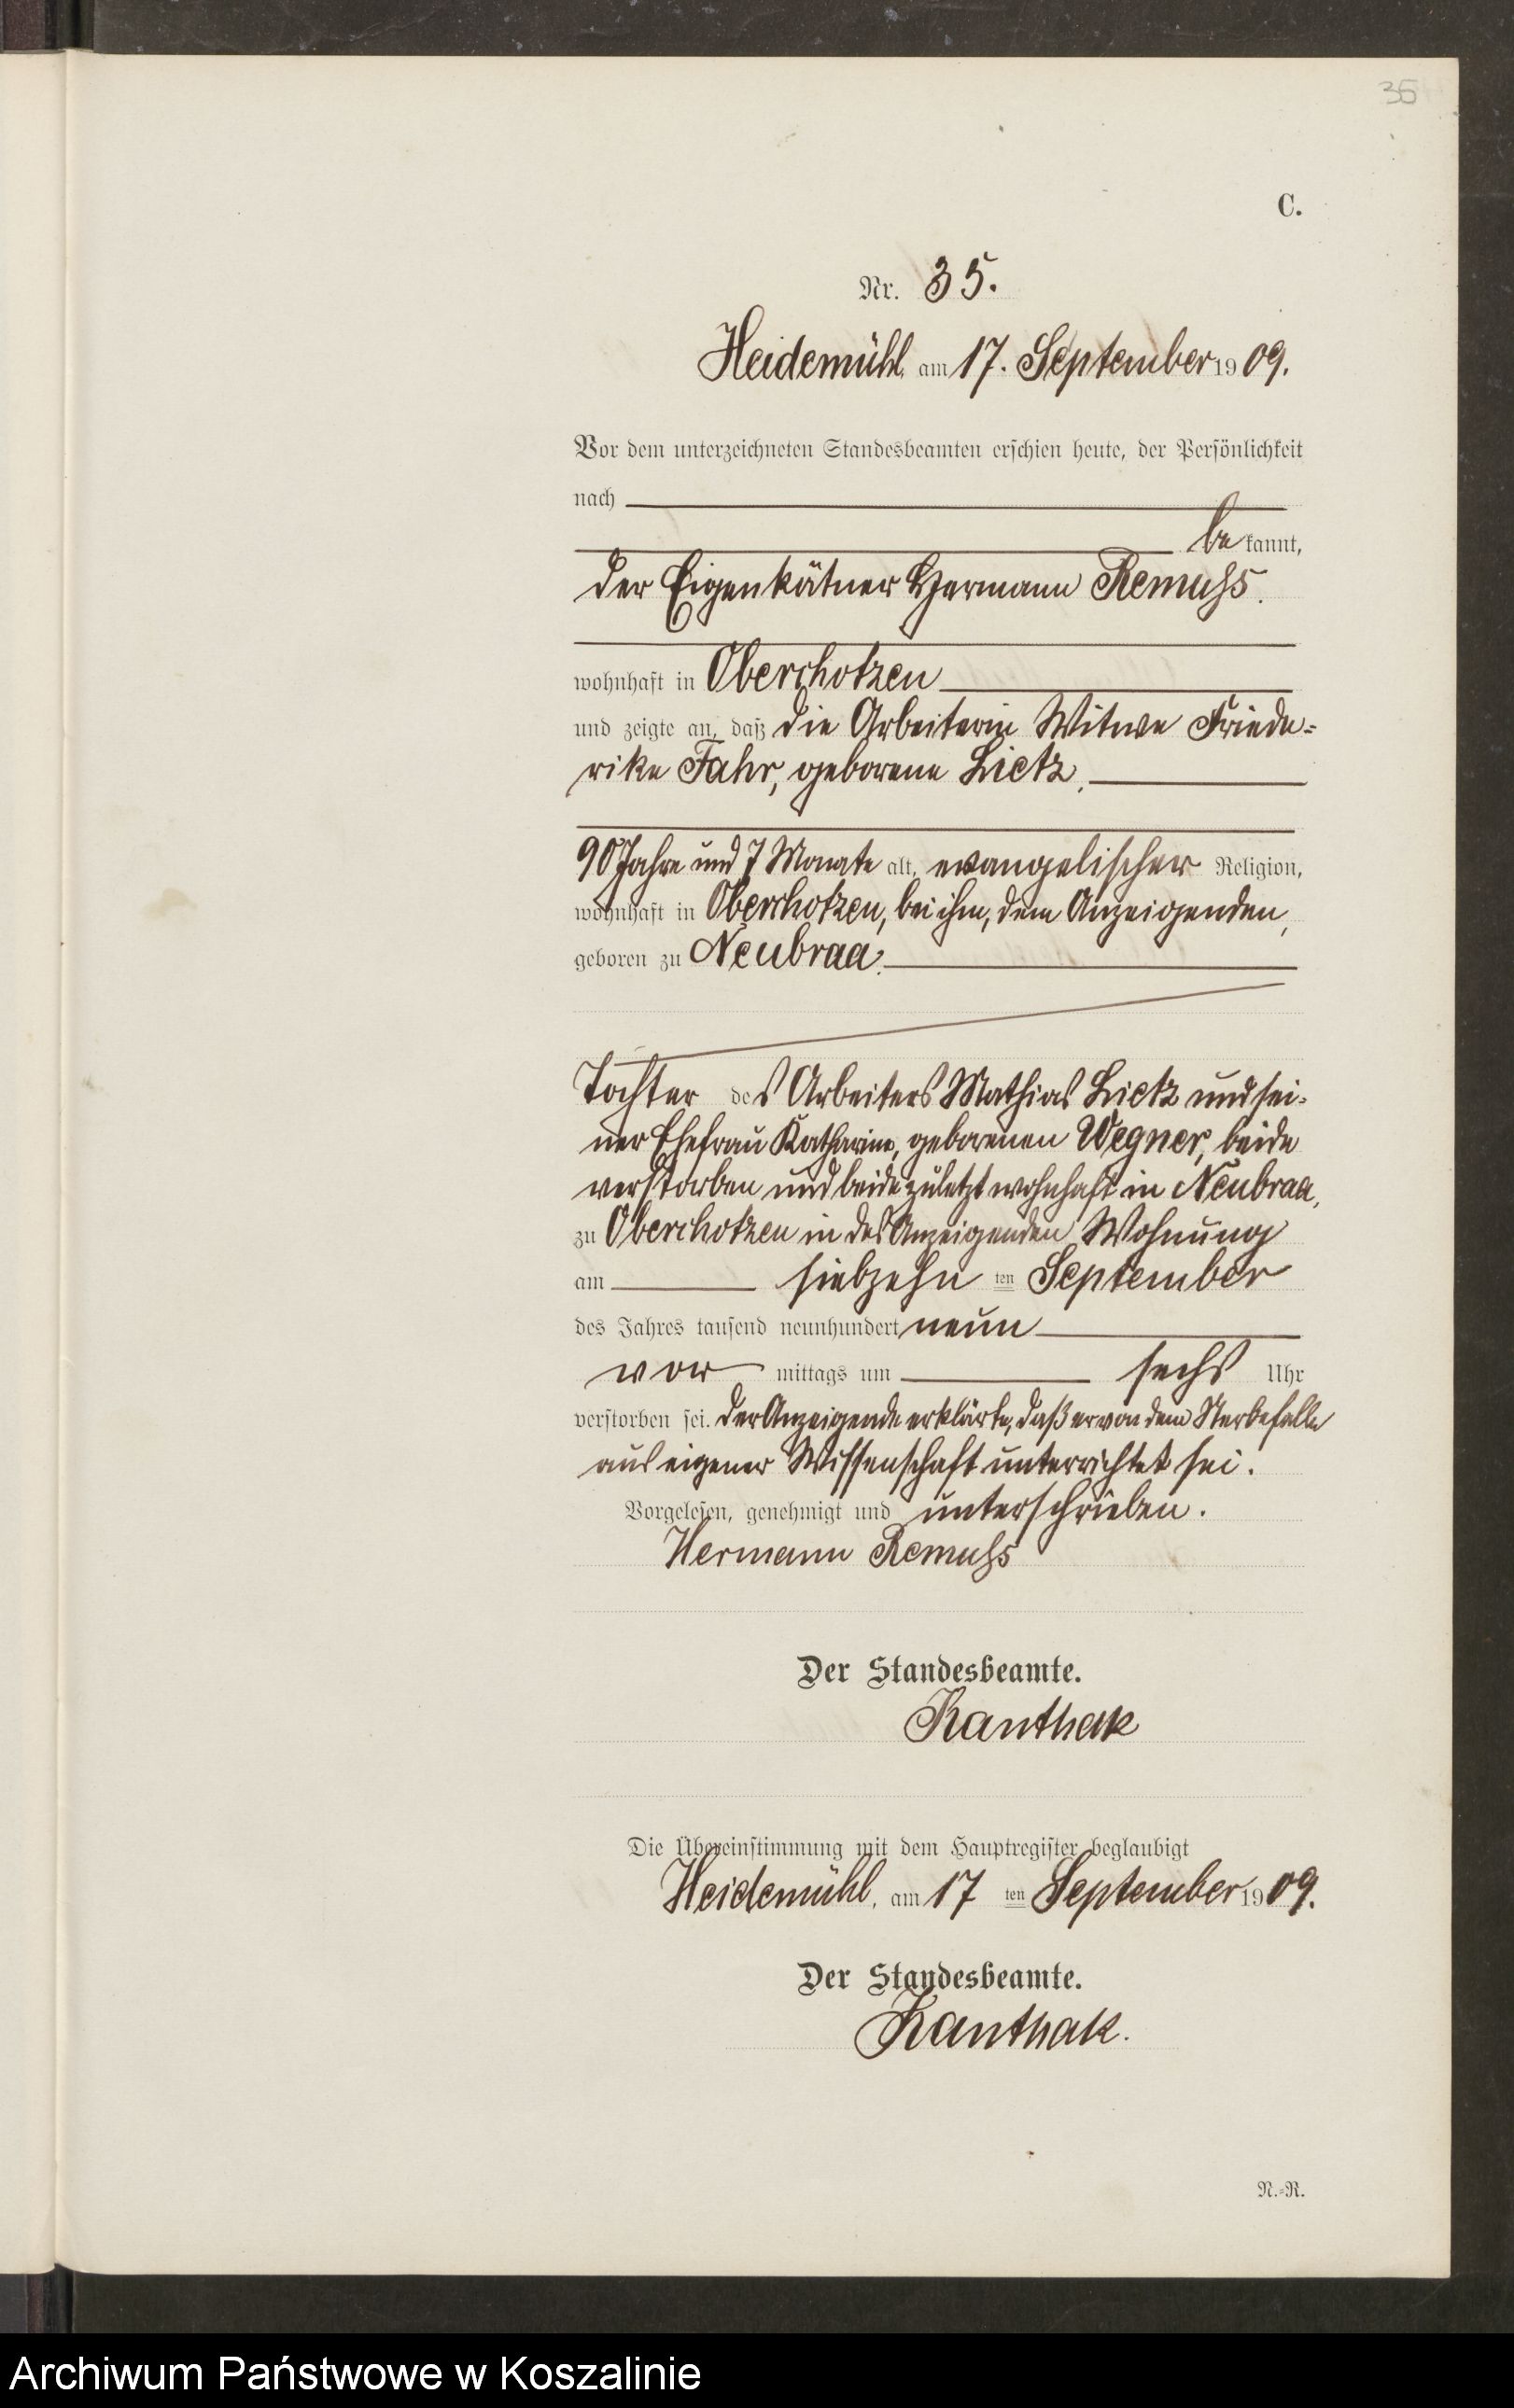 35
C.
Nr. 35.
Heidemühl, am 17. September 1909.
Vor dem unterzeichneten Standesbeamten erschien heute, der Persönlichkeit
nach
bekannt,
der Eigenkätner Hermann Remuss.
wohnhaft in Oberchotzen
und zeigte an, daß die Arbeiterin Witwe Friede=
rike Fahr, geborene Lietz,
90 Jahre und 7 Monate alt, evangelischer Religion,
wohnhaft in Oberchotzen, bei ihm, dem Anzeigenden,
geboren zu Neubraa,
Tochter des Arbeiters Mathias Lietz und sei-
ner Ehefrau Katharine, geborenen Wegner, beide
verstorben und beide zuletzt wohnhaft in Neubraa,
zu Oberchotzen in des Anzeigenden Wohnung
am siebzehn ten September
des Jahres tausend neunhundert neun
vor mittags um sechs Uhr
verstorben sei. Der Anzeigende erklärte, daß er von dem Sterbefalle
aus eigener Wissenschaft unterrichtet sei.
Vorgelesen, genehmigt und unterschrieben.
Hermann Remuss
Der Standesbeamte.
Kanthak
Die Übereinstimmung mit dem Hauptregister beglaubigt
Heidemühl, am 17 ten September 1909.
Der Standesbeamte.
Kanthak.
N.=R.
Archiwum Państwowe w Koszalinie